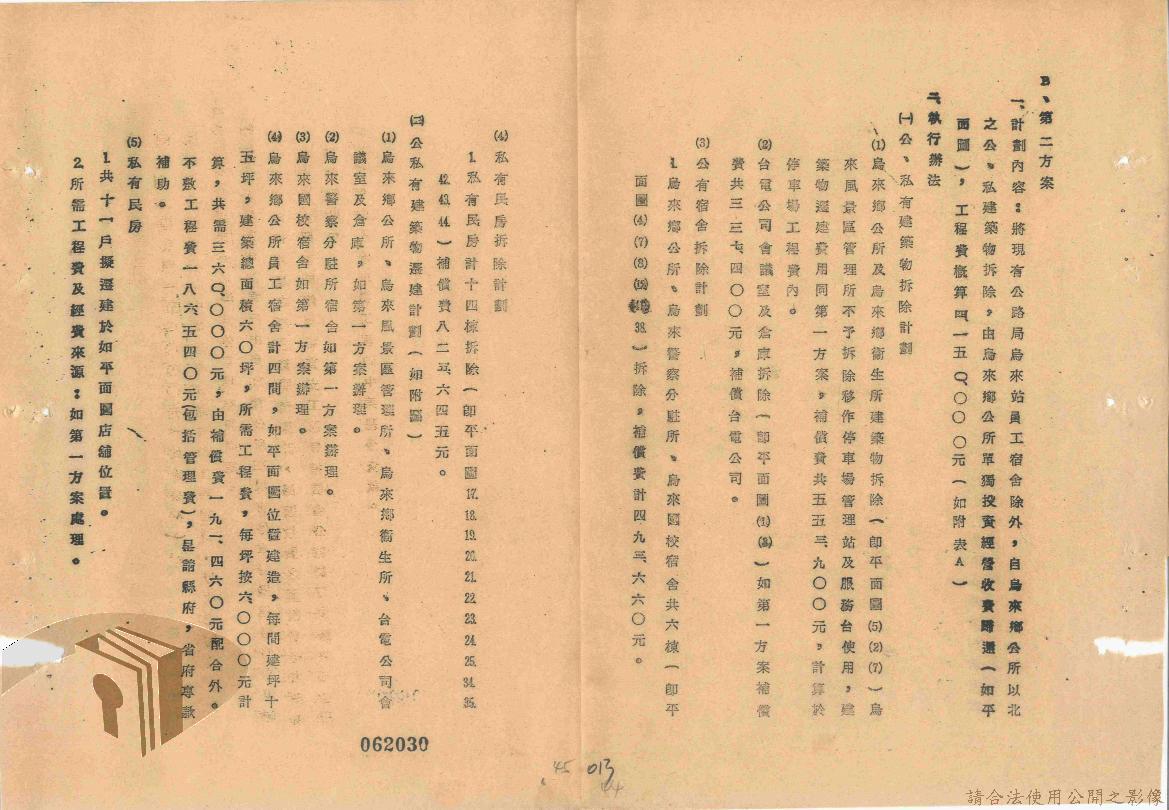 B、第二方案
一、計劃內容：將現有公路局烏來站員工宿舍除外，自烏來鄉公所以北
之公、私建築物拆除，由烏來鄉公所單獨投資經營收費歸還（如平
面圖），工程費概算四一五〇、〇〇〇元（如附表A）
二、執行辦法
㈠公、私有建築物拆除計劃
⑴烏來鄉公所及烏來鄉衞生所建築物拆除（即平面圖⑸⑵⑺）烏
來風景區管理所不予拆除移作停車場管理站及服務台使用，建
築物遷建費用同第一方案，補償費共五五三、九〇〇元，計算於
停車場工程費內。
⑵台電公司會議室及倉庫拆除（即平面圖⑴⑶）如第一方案補償
費共三三七、四〇〇元，補償台電公司。
⑶公有宿舍拆除計劃
1.烏來鄉公所、烏來警察分駐所、烏來國校宿舍共六棟（即平
面圖⑷⑺⑻ 38.）拆除，補償費計四九三、六六〇元。
⑷私有民房拆除計劃
1.私有民房計十四棟拆除（即平面圖17.18.19.20.21.22.23.24.25.34.35.
42.43.44.）補償費八二三、六四五元。
㈡公私有建築物遷建計劃（如附圖）
⑴烏來鄉公所、烏來風景區管理所、烏來鄉衞生所、台電公司會
議室及倉庫，如第一方案辦理。
⑵烏來警察分駐所宿舍如第一方案辦理。
⑶烏來國校宿舍如第一方案辦理。
⑷烏來鄉公所員工宿舍計四間，如平面圖位置建造，每間建坪十
五坪，建築總面積六〇坪，所需工程費，每坪按六、〇〇〇元計
算，共需三六〇、〇〇〇元，由補償費一九一、四六〇元配合外。
不敷工程費一八六、五四〇元（包括管理費），是請縣府，省府專款
補助。
⑸私有民房
1.共十一戶擬遷建於如平面圖店舖位置。
2.所需工程費及經費來源：如第一方案處理。
062030
45 013
44
請合法使用公開之影像